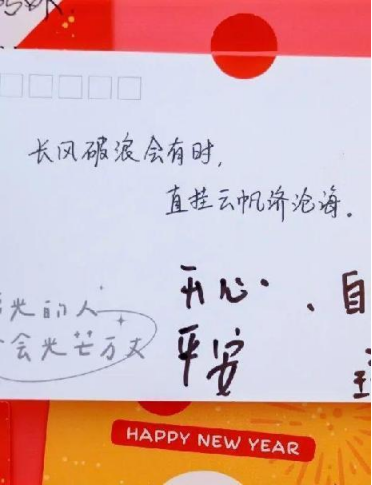 长风破浪会有时，
直挂云帆济沧海。
开心. . 自
平安
光的人
会光芒万丈
HAPPY NEW YEAR